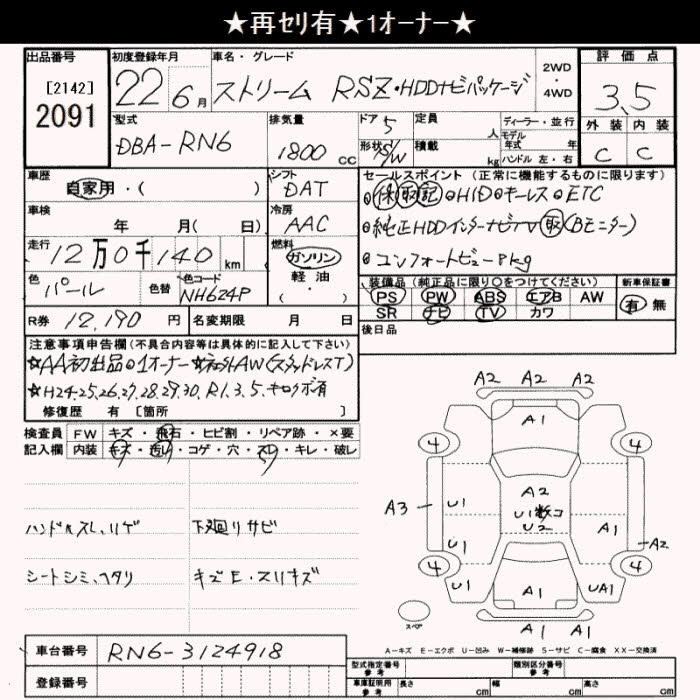 ★再セリ有★1オーナー★
出品番号
[2142]
2091
初度登録年月
22 6月
車名・グレード
ストリーム RSZ・HDDナビパッケージ
2WD
・
4WD
評価点
3.5
外装 内装
C C
型式
DBA-RN6
排気量
1800 cc
ドア 5
形状 S/W
定員 人
積載 kg
ディーラー・並行
モデル
年式 年
ハンドル 左・右
車歴
自家用・( )
シフト
DAT
車検
年 月( 日)
冷房
AAC
走行
12万0千140 km
燃料
ガソリン
軽油
( ・ )
色
パール
色替
色コード
NH624P
R券 12,190 円
名変期限 月 日
セールスポイント(正常に機能するものに限ります)
◎保取記◎HID◎キーレス◎ETC
◎純正HDDインターナビTV取(Bモニター)
◎コンフォートビューPkg
装備品(純正品に限り○をつけてください)
新車保証書
PS PW ABS エアB AW
SR ナビ TV カワ
有 無
後日品
注意事項申告欄(不具合内容等は具体的に記入して下さい)
☆AA初出品◎1オーナー☆社外AW(スタッドレスT)
☆H24.25.26.27.28.29.30.R1.3.5.キロク簿有
修復歴 有 [箇所 ]
検査員
記入欄
FW キズ・飛石・ヒビ割・リペア跡・×要
内装 キズ・汚れ・コゲ・穴・スレ・キレ・破レ
ハンドルスレ、リゲ
下廻リサビ
シートシミ、ヘタリ
キズE・スリキズ
A2 A2 A2
A1
4 4
A2
U1 数コ
U2
A3
U1
U1
A1
A2
4 4
U1
A1
UA1
A1 A1
スペア
A-キズ E-エクボ U-凹み W-補修跡 S-サビ C-腐食 XX-交換済
車台番号 RN6-3124918
登録番号
型式指定番号
参考
類別区分番号
参考
車庫証明用
参考
長さ cm
幅 cm
高さ cm